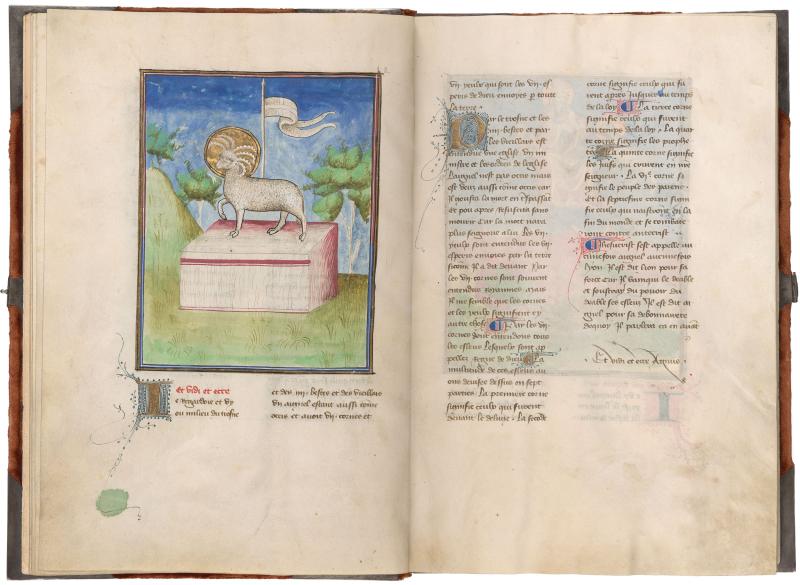 Et vidi et ecce
Je regardoie et vy
ou milieu du trosne
et des iiii bestes et des vieillars
un aignel estant aussi come
occis et auoit vii cornes et
vii yeulx qui sont les vii es
peris de dieu enuoyes p toute
la terre
Par le trosne et les
iiii bestes et par
les vieillars est
une eglise
et les de leglise
laignel nest pas occis mais
est veu aussi come occis car
il gousta la mort en trespassāt
et pou apres resuscita sans
mourir Car la mort naura
plus seignorie a lui Les vii
yeulx sont entendus les vii
esperis enuoyes par la terre
sicōm il a dit deuant Par
les vii cornes sont souuent
entendus Royaumes mais
il me semble que les cornes
et les yeulx signifient cy
autre chose Par les vii
cornes sont entendus tous
les esleus lesquelx sont ap
pellez Regne de dieu La
multitude de ces esleus a
ons deuisee dessus en sept
parties La premiere corne
signifie ceulx qui furent
deuant le deluge La secōde
corne signifie ceulx qui fu
rent apres iusques au temps
de la loy La tierce corne
signifie ceulx qui furent
au temps de la loy La quar
te corne signifie les prophe
tes La quinte corne signifie
les iuifs qui crurent en nre
seigneur La vie corne si
gnifie le peuple des paiens
et la septiesme corne signi
fie ceulx qui naistront en la
fin du monde et se combate
ront contre antecrist
Ihesucrist est appelle au
cunefois aignel aucunefois
lyon Il est dit lion pour sa
force car il vainqui le deable
et soustray du pouoir du
deable ses esleus Il est dit ai
gnel pour sa debonnairete
dequoy il parlera cy en auāt
Et vidi et ecce Agnus